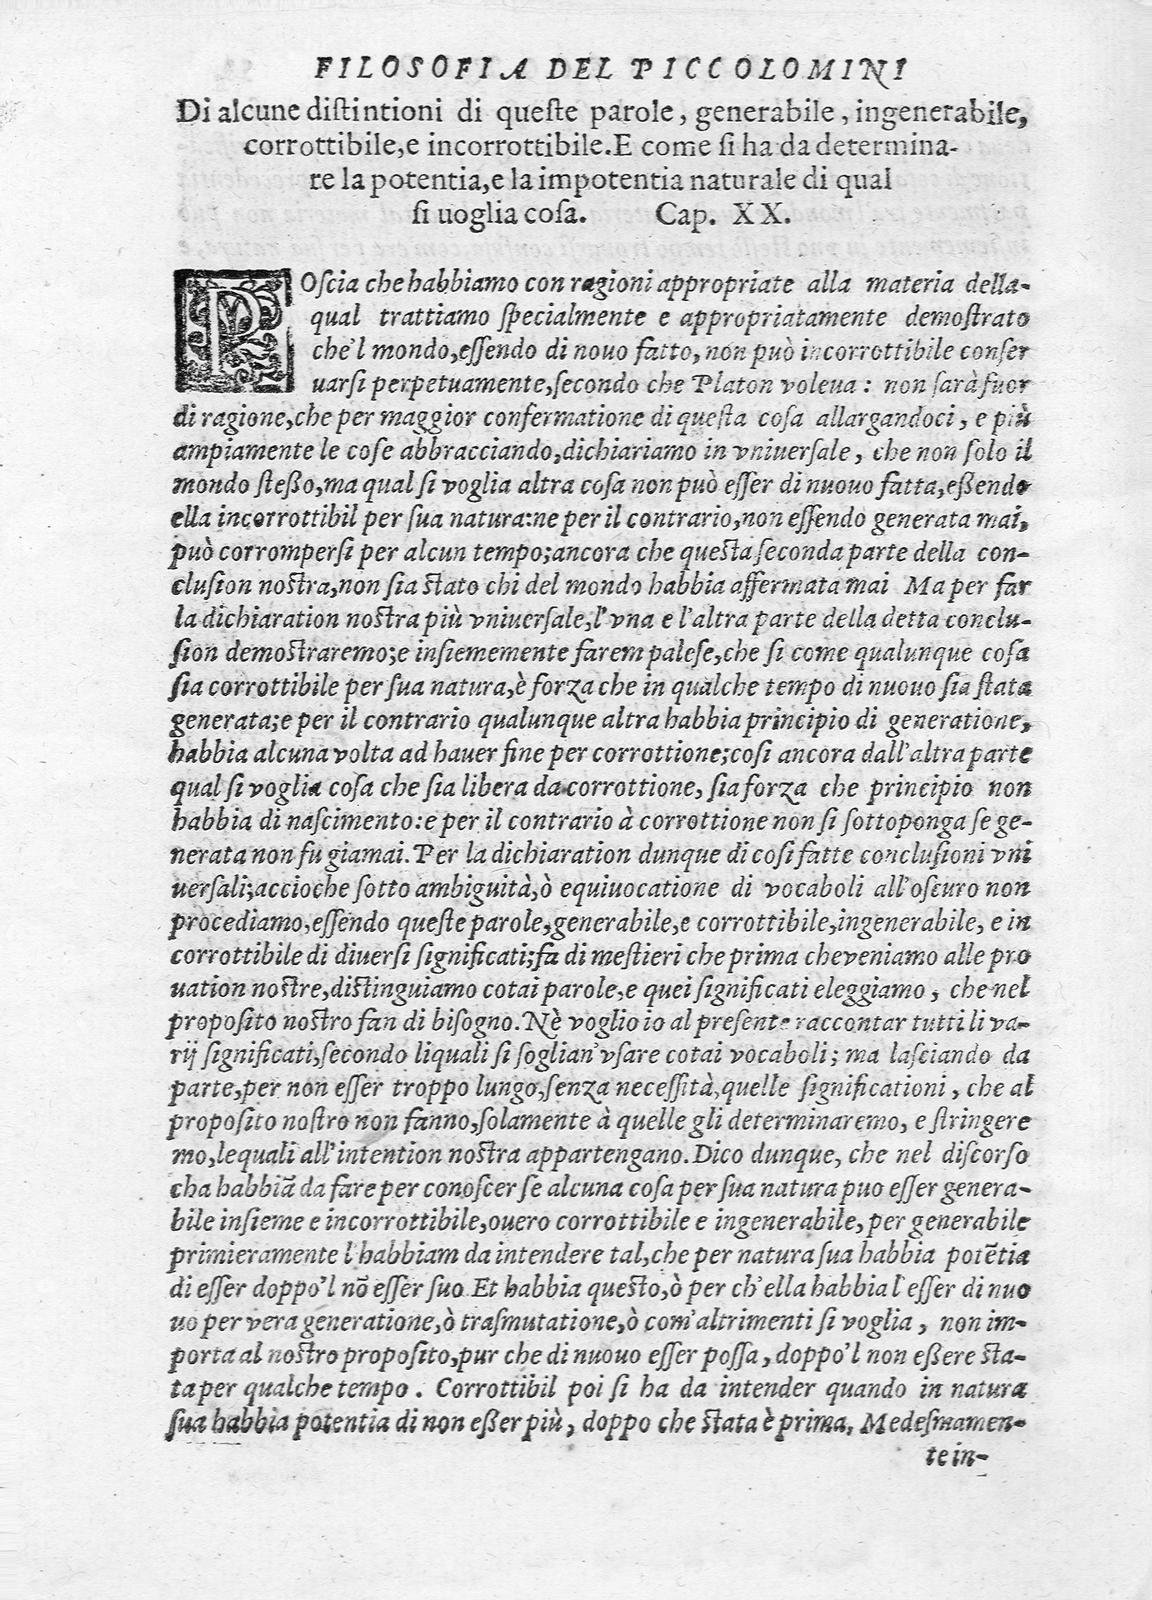 FILOSOFIA DEL PICCOLOMINI
Di alcune diſtintioni di queſte parole, generabile, ingenerabile,
corrottibile, e incorrottibile. E come ſi ha da determina-
re la potentia, e la impotentia naturale di qual
ſi uoglia coſa. Cap. XX.
POſcia che habbiamo con ragioni appropriate alla materia della-
qual trattiamo ſpecialmente e appropriatamente demoſtrato
che'l mondo, eſſendo di nouo fatto, non può incorrottibile conſer
uarſi perpetuamente, ſecondo che Platon voleua: non ſarà fuor
di ragione, che per maggior confermatione di queſta coſa allargandoci, e più
ampiamente le coſe abbracciando, dichiariamo in vniuerſale, che non ſolo il
mondo ſteßo, ma qual ſi voglia altra coſa non può eſſer di nuouo fatta, eßendo
ella incorrottibil per ſua natura: ne per il contrario, non eſſendo generata mai,
può corromperſi per alcun tempo; ancora che queſta ſeconda parte della con-
cluſion noſtra, non ſia ſtato chi del mondo habbia affermata mai Ma per far
la dichiaration noſtra più vniuerſale, l'vna e l'altra parte della detta conclu-
ſion demoſtraremo; e inſiememente farem paleſe, che ſi come qualunque coſa
ſia corrottibile per ſua natura, è forza che in qualche tempo di nuouo ſia ſtata
generata; e per il contrario qualunque altra habbia principio di generatione,
habbia alcuna volta ad hauer fine per corrottione; coſi ancora dall'altra parte
qual ſi voglia coſa che ſia libera da corrottione, ſia forza che principio non
habbia di naſcimento: e per il contrario à corrottione non ſi ſottoponga ſe ge-
nerata non fu giamai. Per la dichiaration dunque di coſi fatte concluſioni vni
uerſali; accioche ſotto ambiguità, ò equiuocatione di vocaboli all'oſcuro non
procediamo, eſſendo queſte parole, generabile, e corrottibile, ingenerabile, e in
corrottibile di diuerſi ſignificati; fa di meſtieri che prima che veniamo alle pro
uation noſtre, diſtinguiamo cotai parole, e quei ſignificati eleggiamo, che nel
propoſito noſtro fan di biſogno. Nè voglio io al preſente raccontar tutti li va-
rij ſignificati, ſecondo liquali ſi ſoglian' vſare cotai vocaboli; ma laſciando da
parte, per non eſſer troppo lungo, ſenza neceſſità, quelle ſignificationi, che al
propoſito noſtro non fanno, ſolamente à quelle gli determinaremo, e ſtringere
mo, lequali all'intention noſtra appartengano. Dico dunque, che nel diſcorſo
cha habbiā da fare per conoſcer ſe alcuna coſa per ſua natura puo eſſer genera-
bile inſieme e incorrottibile, ouero corrottibile e ingenerabile, per generabile
primieramente l'habbiam da intendere tal, che per natura ſua habbia potētia
di eſſer doppo'l nō eſſer ſuo Et habbia queſto, ò per ch'ella habbia l'eſſer di nuo
uo per vera generatione, ò traſmutatione, ò com'altrimenti ſi voglia, non im-
porta al noſtro propoſito, pur che di nuouo eſſer poſſa, doppo'l non eßere ſta-
ta per qualche tempo. Corrottibil poi ſi ha da intender quando in natura
ſua habbia potentia di non eßer più, doppo che ſtata è prima, Medeſmamen-
te in-